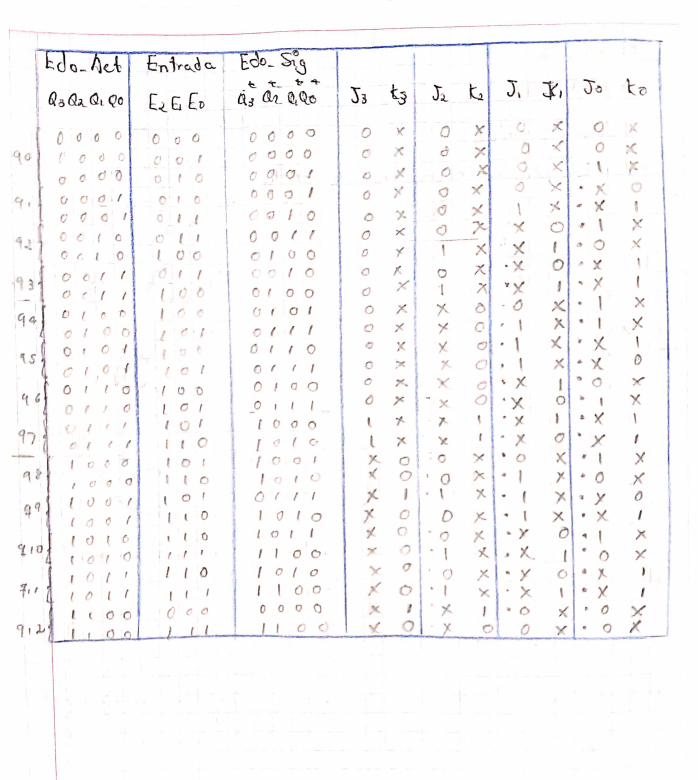 Edo_Act Entrada Edo_Sig
Q3 Q2 Q1 Q0 E2 E1 E0 Q3+ Q2+ Q1+ Q0+ J3 K3 J2 K2 J1 K1 J0 K0
0 0 0 0 0 0 0 0 0 0 0 0 X 0 X 0 X 0 X
q0 0 0 0 0 0 0 1 0 0 0 0 0 X 0 X 0 X 0 X
0 0 0 0 0 1 0 0 0 0 1 0 X 0 X 0 X 1 X
0 0 0 1 0 1 0 0 0 0 1 0 X 0 X 0 X X 0
q1 0 0 0 1 0 1 1 0 0 1 0 0 X 0 X 1 X X 1
0 0 1 0 0 1 1 0 0 1 1 0 X 0 X X 0 1 X
q2 0 0 1 0 1 0 0 0 1 0 0 0 X 1 X X 1 0 X
0 0 1 1 0 1 1 0 0 1 0 0 X 0 X X 0 X 1
q3 0 0 1 1 1 0 0 0 1 0 0 0 X 1 X X 1 X 1
q4 0 1 0 0 1 0 0 0 1 0 1 0 X X 0 0 X 1 X
0 1 0 0 1 0 1 0 1 1 1 0 X X 0 1 X 1 X
q5 0 1 0 1 1 0 0 0 1 1 0 0 X X 0 1 X X 1
0 1 0 1 1 0 1 0 1 1 1 0 X X 0 1 X X 0
0 1 1 0 1 0 0 0 1 0 0 0 X X 0 X 1 0 X
q6 0 1 1 0 1 0 1 0 1 1 1 0 X X 0 X 0 1 X
0 1 1 1 1 0 1 1 0 0 0 1 X X 1 X 1 X 1
q7 0 1 1 1 1 1 0 1 0 1 0 1 X X 1 X 0 X 1
1 0 0 0 1 0 1 1 0 0 1 X 0 0 X 0 X 1 X
q8 1 0 0 0 1 1 0 1 0 1 0 X 0 0 X 1 X 0 X
1 0 0 1 1 0 1 0 1 1 1 X 1 1 X 1 X X 0
q9 1 0 0 1 1 1 0 1 0 1 0 X 0 0 X 1 X X 1
1 0 1 0 1 1 0 1 0 1 1 X 0 0 X X 0 1 X
q10 1 0 1 0 1 1 1 1 1 0 0 X 0 1 X X 1 0 X
1 0 1 1 1 1 0 1 0 1 0 X 0 0 X X 0 X 1
q11 1 0 1 1 1 1 1 1 1 0 0 X 0 1 X X 1 X 1
1 1 0 0 0 0 0 0 0 0 0 X 1 X 1 0 X 0 X
q12 1 1 0 0 1 1 1 1 1 0 0 X 0 X 0 0 X 0 X